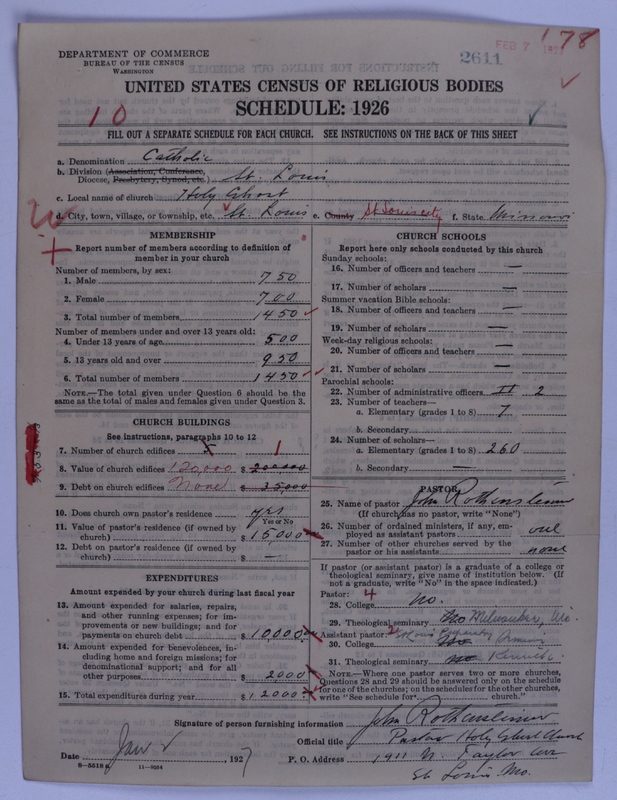 178
FEB 7
2611
DEPARTMENT OF COMMERCE
BUREAU OF THE CENSUS
WASHINGTON
UNITED STATES CENSUS OF RELIGIOUS BODIES
SCHEDULE: 1926
10
FILL OUT A SEPARATE SCHEDULE FOR EACH CHURCH. SEE INSTRUCTIONS ON THE BACK OF THIS SHEET
a. Denomination Catholic
b. Division (Association, Conference,
Diocese, Presbytery, Synod, etc.) St. Louis
c. Local name of church Holy Ghost
d. City, town, village, or township, etc. St. Louis e. County St Louis city f. State Missouri
MEMBERSHIP
Report number of members according to definition of
member in your church
Number of members, by sex:
1. Male 750
2. Female 700
3. Total number of members 1450
Number of members under and over 13 years old:
4. Under 13 years of age 500
5. 13 years old and over 950
6. Total number of members 1450
NOTE.—The total given under Question 6 should be
the same as the total of males and females given under Question 3.
CHURCH BUILDINGS
See instructions, paragraphs 10 to 12
7. Number of church edifices 1
8. Value of church edifices 120,000 $ 200000
9. Debt on church edifices None $ 35,000
10. Does church own pastor's residence yes
Yes or No
11. Value of pastor's residence (if owned by
church) $ 15,000
12. Debt on pastor's residence (if owned by
church) $ —
EXPENDITURES
Amount expended by your church during last fiscal year
13. Amount expended for salaries, repairs,
and other running expenses; for im-
provements or new buildings; and for
payments on church debt $ 10000
14. Amount expended for benevolences, in-
cluding home and foreign missions; for
denominational support; and for all
other purposes $ 2000
15. Total expenditures during year $ 12000
CHURCH SCHOOLS
Report here only schools conducted by this church
Sunday schools:
16. Number of officers and teachers —
17. Number of scholars —
Summer vacation Bible schools:
18. Number of officers and teachers —
19. Number of scholars —
Week-day religious schools:
20. Number of officers and teachers —
21. Number of scholars —
Parochial schools:
22. Number of administrative officers II 2
23. Number of teachers—
a. Elementary (grades 1 to 8) 7
b. Secondary
24. Number of scholars—
a. Elementary (grades 1 to 8) 260
b. Secondary —
PASTOR
25. Name of pastor John Rothensteiner
(If church has no pastor, write "None")
26. Number of ordained ministers, if any, em-
ployed as assistant pastors one
27. Number of other churches served by the
pastor or his assistants none
If pastor (or assistant pastor) is a graduate of a college or
theological seminary, give name of institution below. (If
not a graduate, write "No" in the space indicated.)
Pastor: 4
28. College No.
29. Theological seminary No Milwaukee, Wis.
Assistant pastor: St Louis
30. College No
31. Theological seminary No Kenrick
NOTE.—Where one pastor serves two or more churches,
Questions 28 and 29 should be answered only on the schedule
for one of the churches; on the schedules for the other churches,
write "See schedule for church."
Signature of person furnishing information John Rothensteiner
Official title Pastor Holy Ghost Church
Date Jan 2, 1927 P. O. Address 1911 N. Taylor ave
St Louis Mo.
8—5518a 11—9064